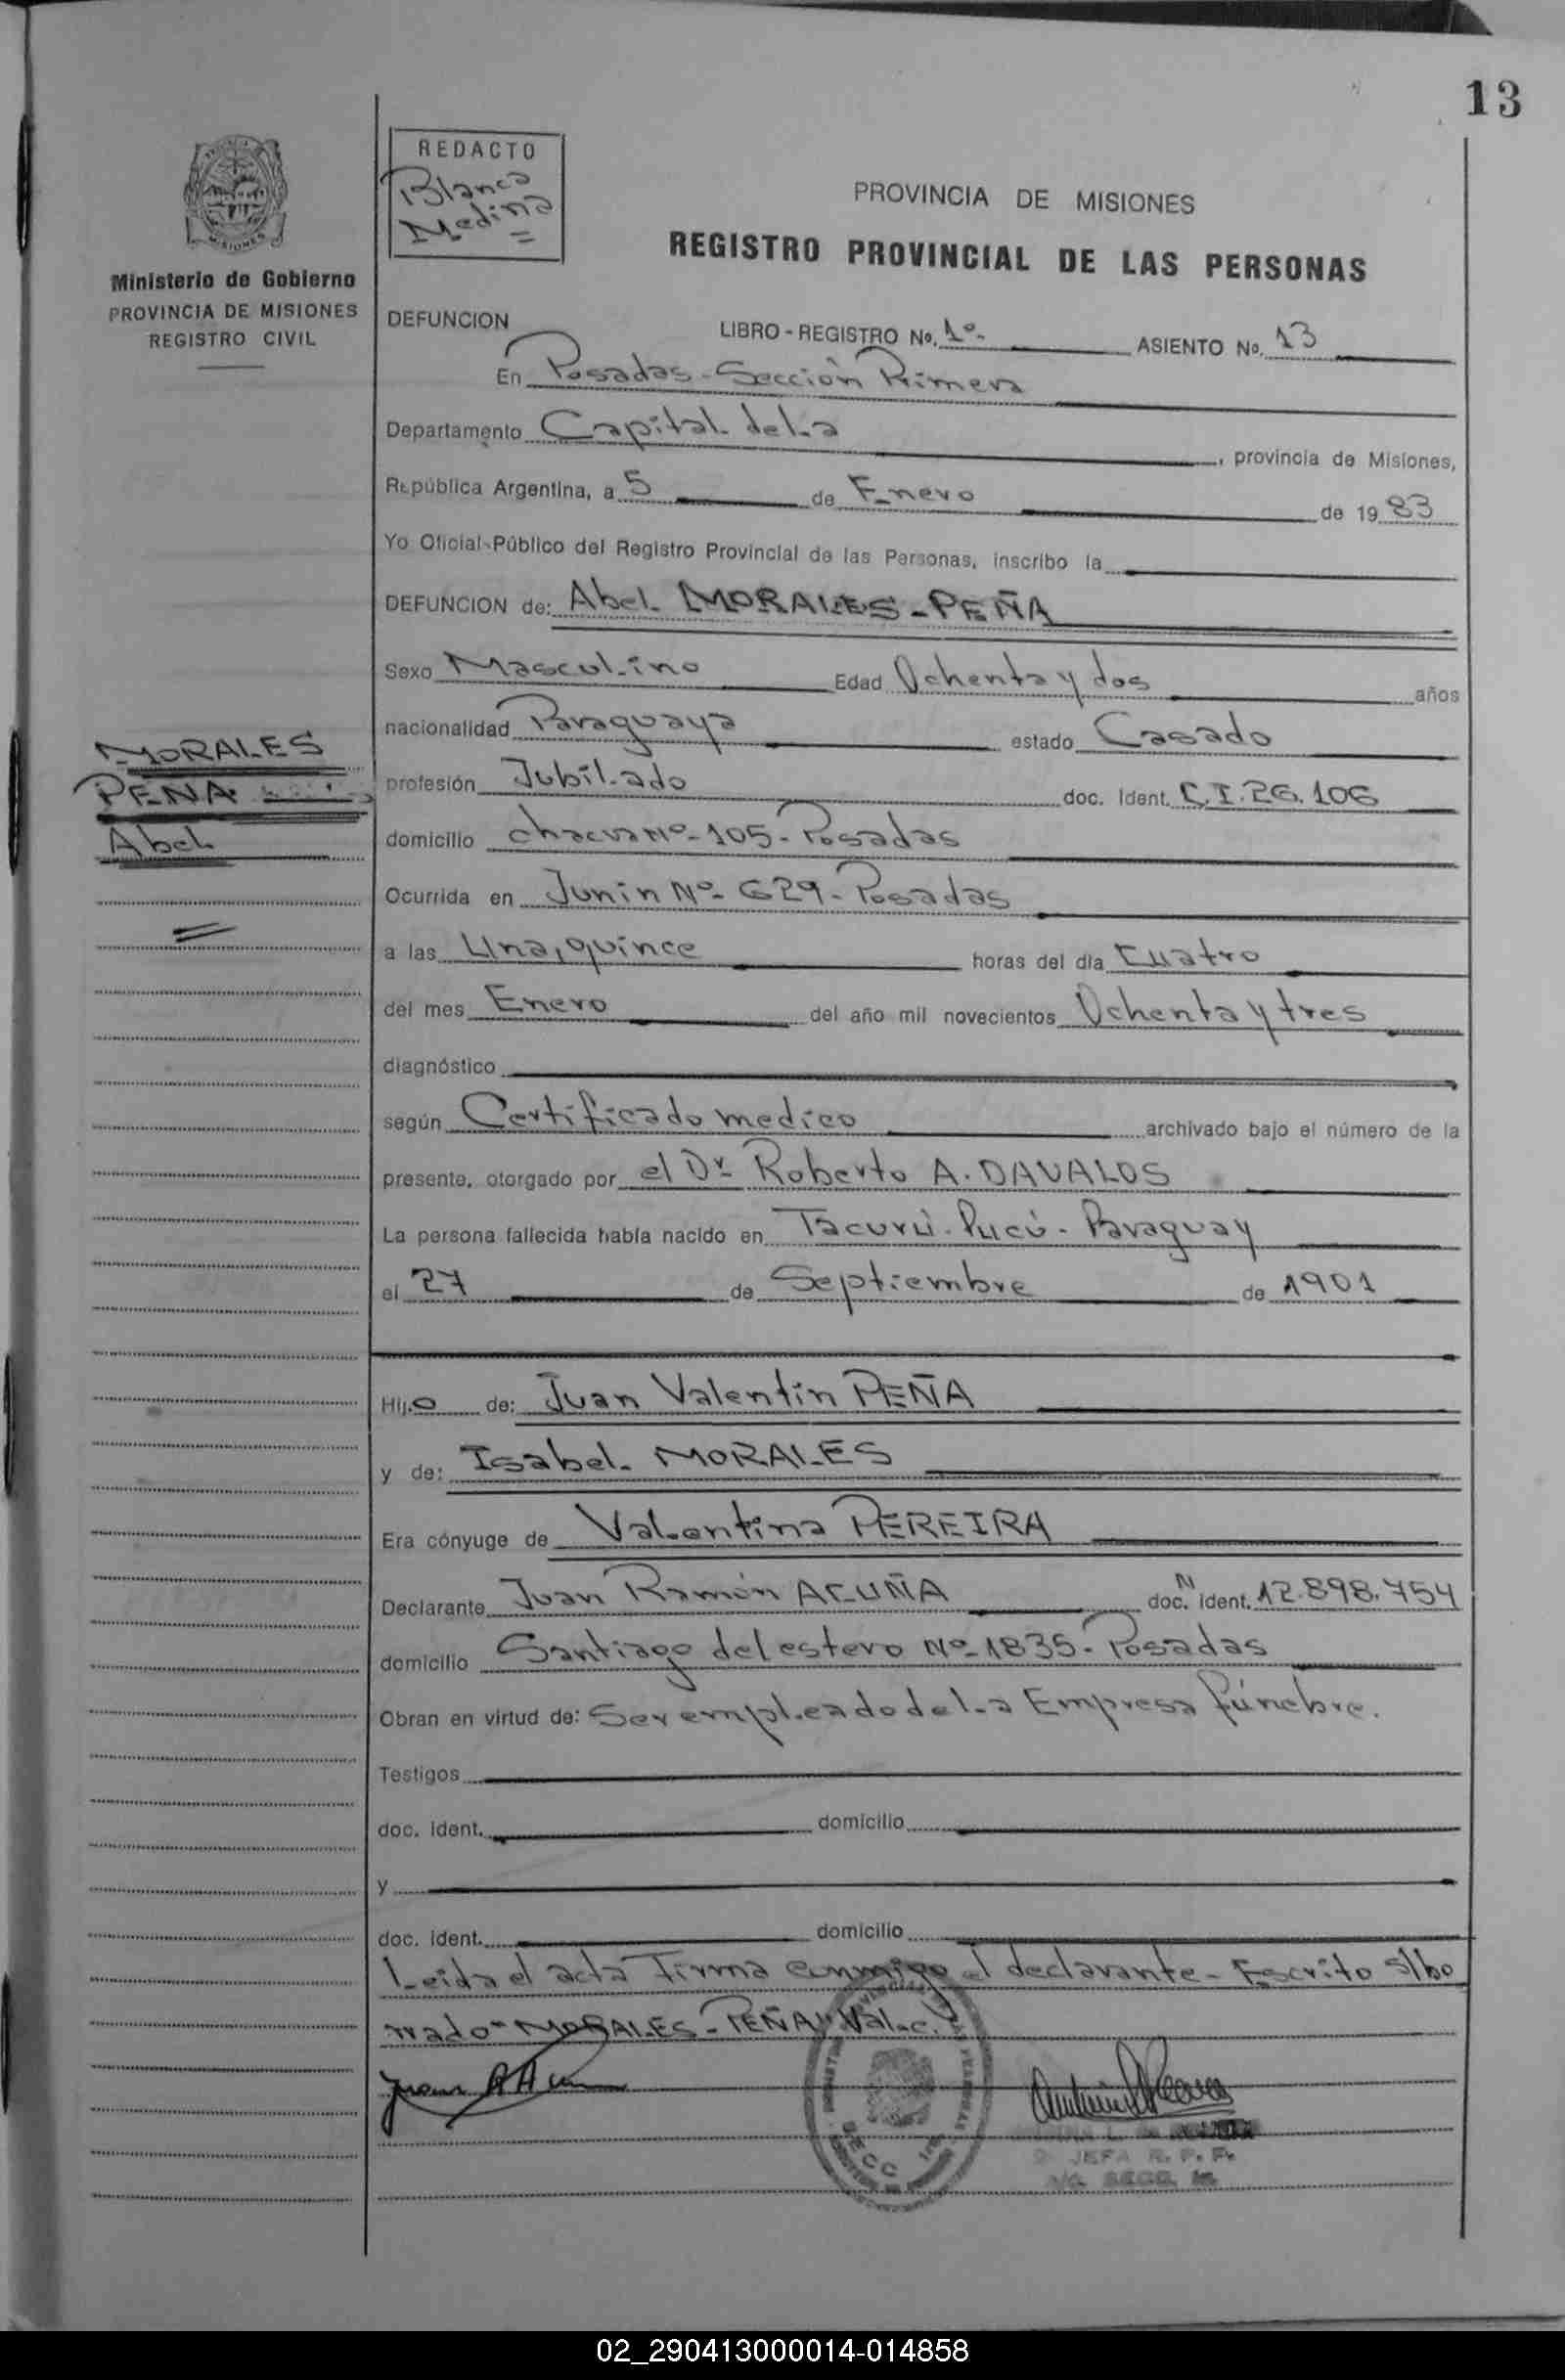 13
REDACTO
Blanca
Medina
MISIONES
Ministerio de Gobierno
PROVINCIA DE MISIONES
REGISTRO CIVIL
PROVINCIA DE MISIONES
REGISTRO PROVINCIAL DE LAS PERSONAS
DEFUNCION LIBRO - REGISTRO No. 1º- ASIENTO No. 13
En Posadas - Sección Primera
Departamento Capital de la , provincia de Misiones,
República Argentina, a 5 de Enero de 1983
Yo Oficial Público del Registro Provincial de las Personas, inscribo la
DEFUNCION de: Abel MORALES - PEÑA
Sexo Masculino Edad Ochenta y dos años
nacionalidad Paraguaya estado Casado
profesión Jubilado doc. Ident. C.I. 26.106
domicilio chacra Nº- 105 - Posadas
Ocurrida en Junin Nº- 629 - Posadas
a las Una, quince horas del día Cuatro
del mes Enero del año mil novecientos Ochenta y tres
diagnóstico
según Certificado medico archivado bajo el número de la
presente, otorgado por el Dr Roberto A. DAVALOS
La persona fallecida había nacido en Tacurú - Pucú - Paraguay
el 27 de Septiembre de 1901
Hijo de: Juan Valentín PEÑA
y de: Isabel MORALES
Era cónyuge de Valentina PEREIRA
Declarante Juan Ramón ACUÑA doc. N Ident. 12.898.754
domicilio Santiago del estero Nº- 1835 - Posadas
Obran en virtud de: Ser empleado de la Empresa fúnebre.
Testigos
doc. ident. domicilio
y
doc. ident. domicilio
Leida el acta firma conmigo el declarante - Escrito s/bo
rrado "MORALES - PEÑA" Val-e.
MORALES
PEÑA
Abel
SECC 1ra
JEFA R. P. P.
SECC. 1a
02_290413000014-014858